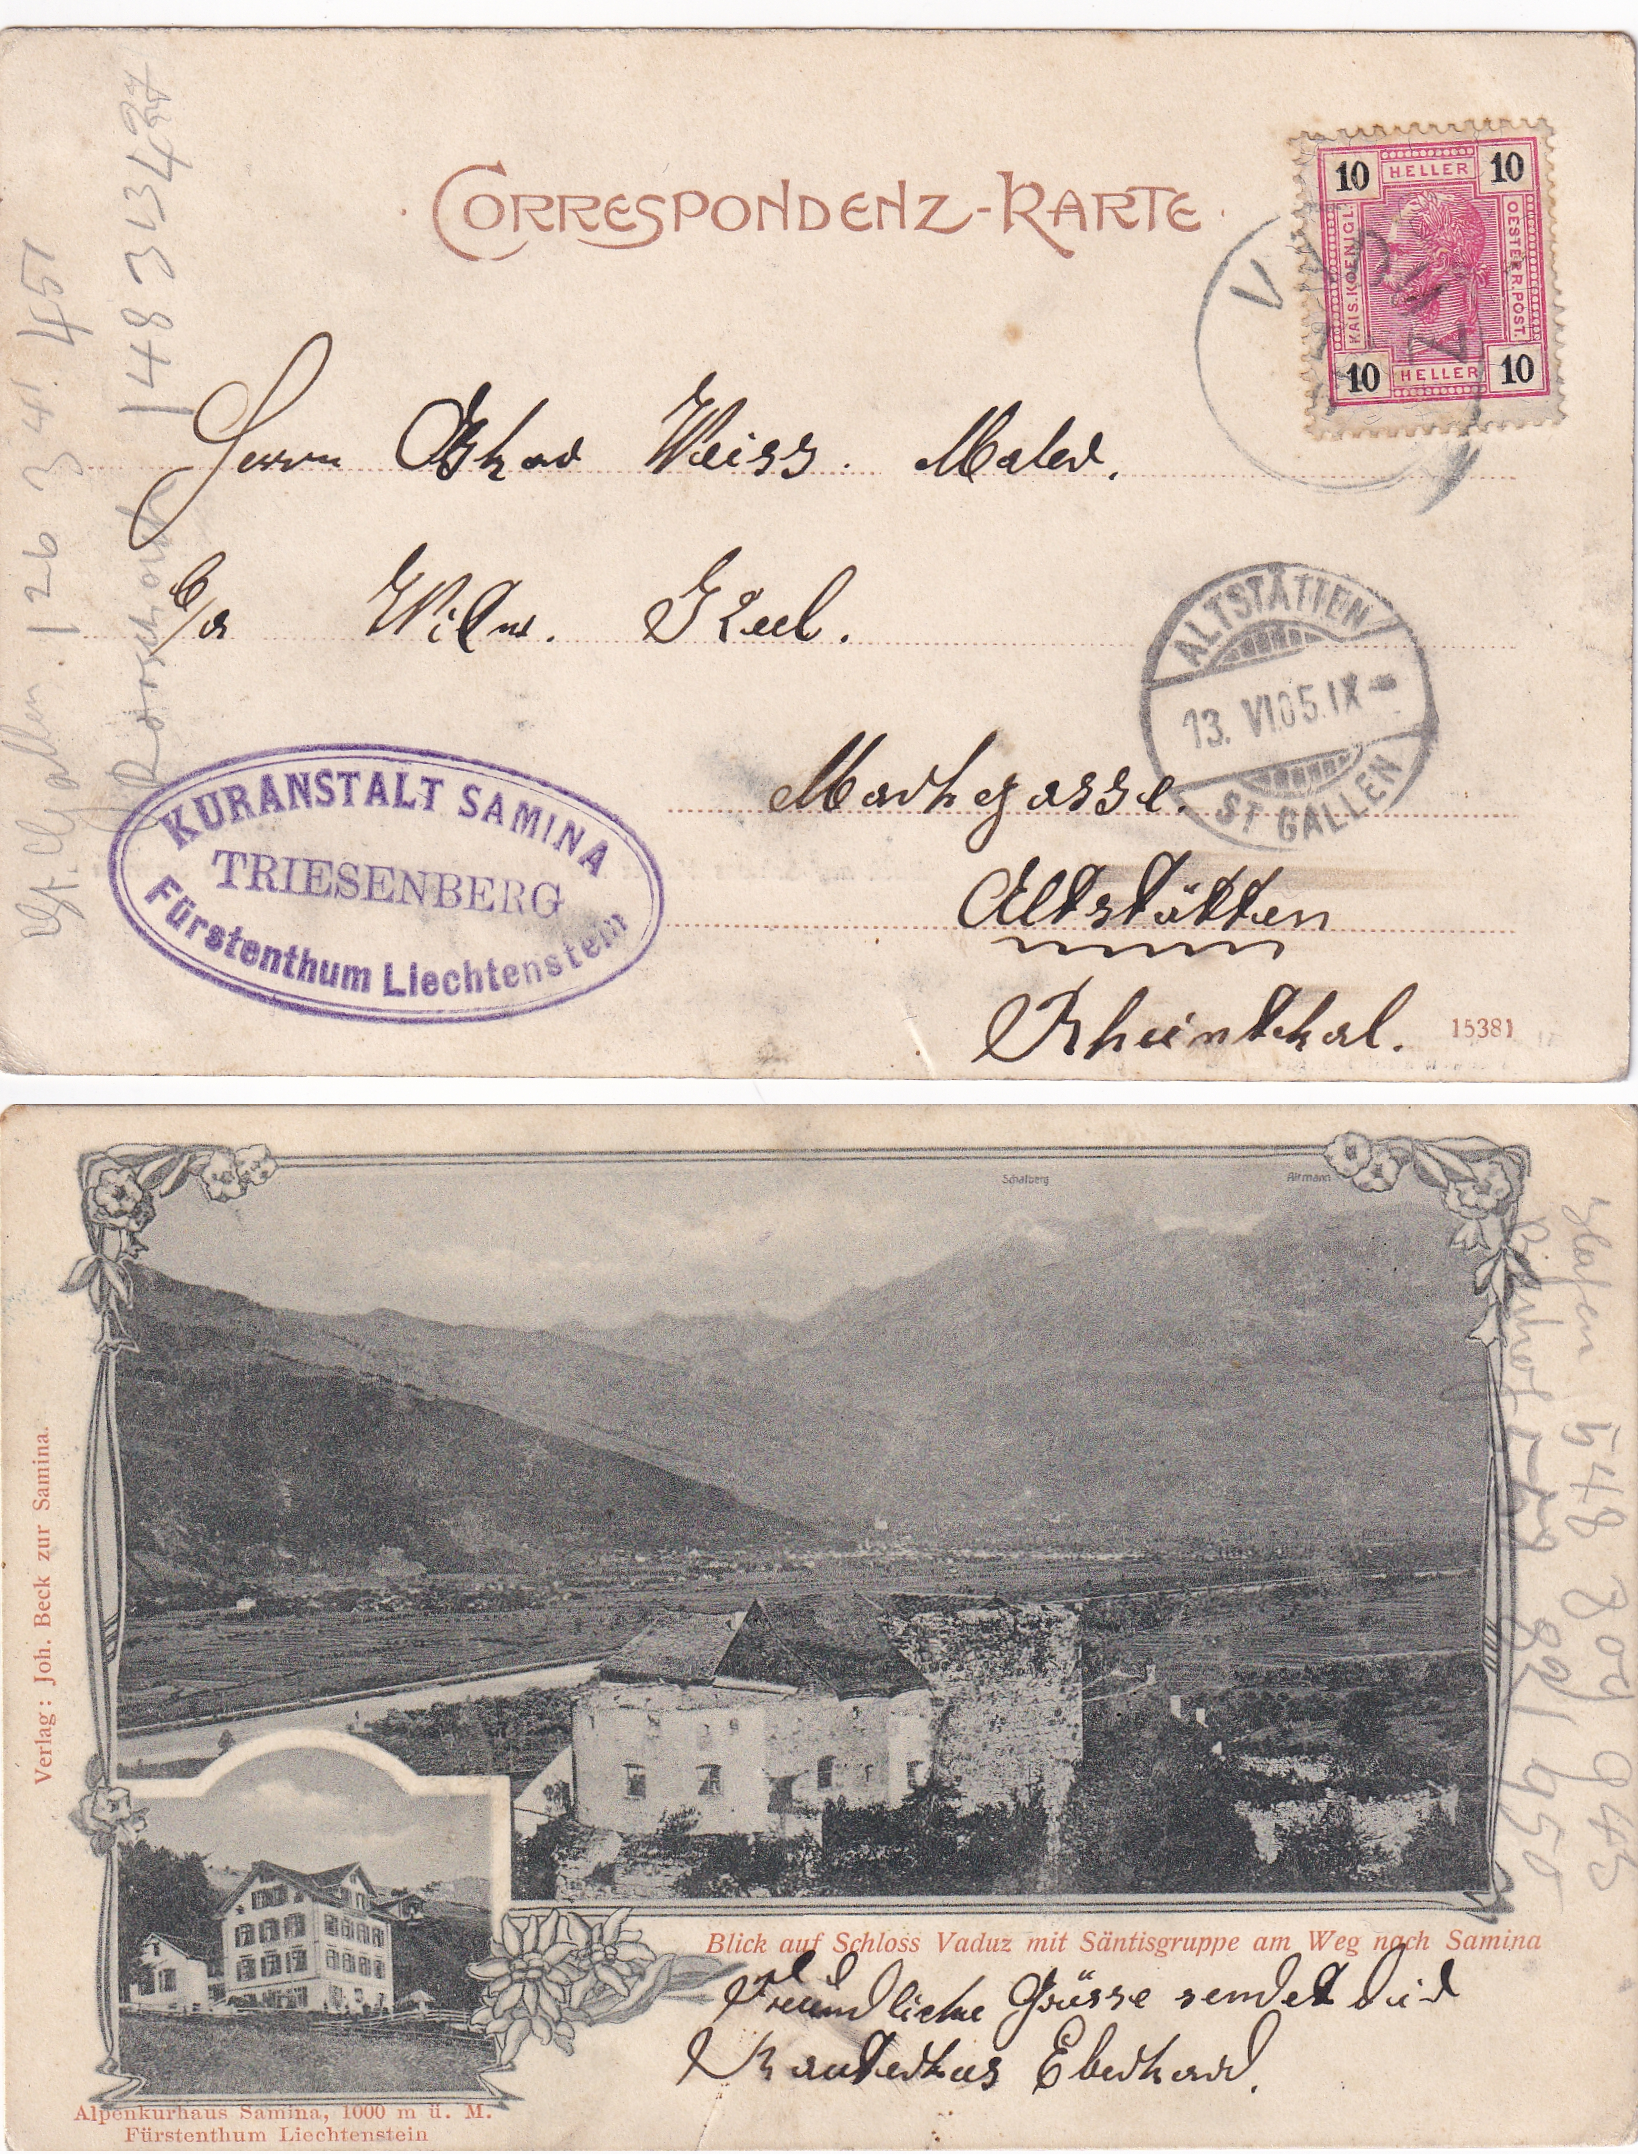 CORRESPONDENZ-KARTE
10 HELLER 10
KAIS. KOENIGL.
OESTERR. POST.
10 HELLER 10
Herrn Weiss. Maler.
c/o Wilw. Keel.
ALTSTÄTTEN
13. VI 05. IX-
ST GALLEN
Marktgasse.
Altstätten
Rheinthal.
KURANSTALT SAMINA
TRIESENBERG
Fürstenthum Liechtenstein
15381
St. Gallen 126 341. 451
Rorschach 148 313 427
Schafberg
Altmann
Verlag: Joh. Beck zur Samina.
Hafen 548 809 945
Bahnhof
Blick auf Schloss Vaduz mit Säntisgruppe am Weg nach Samina
Freundliche Grüsse sendet dir
Eberhard.
Alpenkurhaus Samina, 1000 m ü. M.
Fürstenthum Liechtenstein